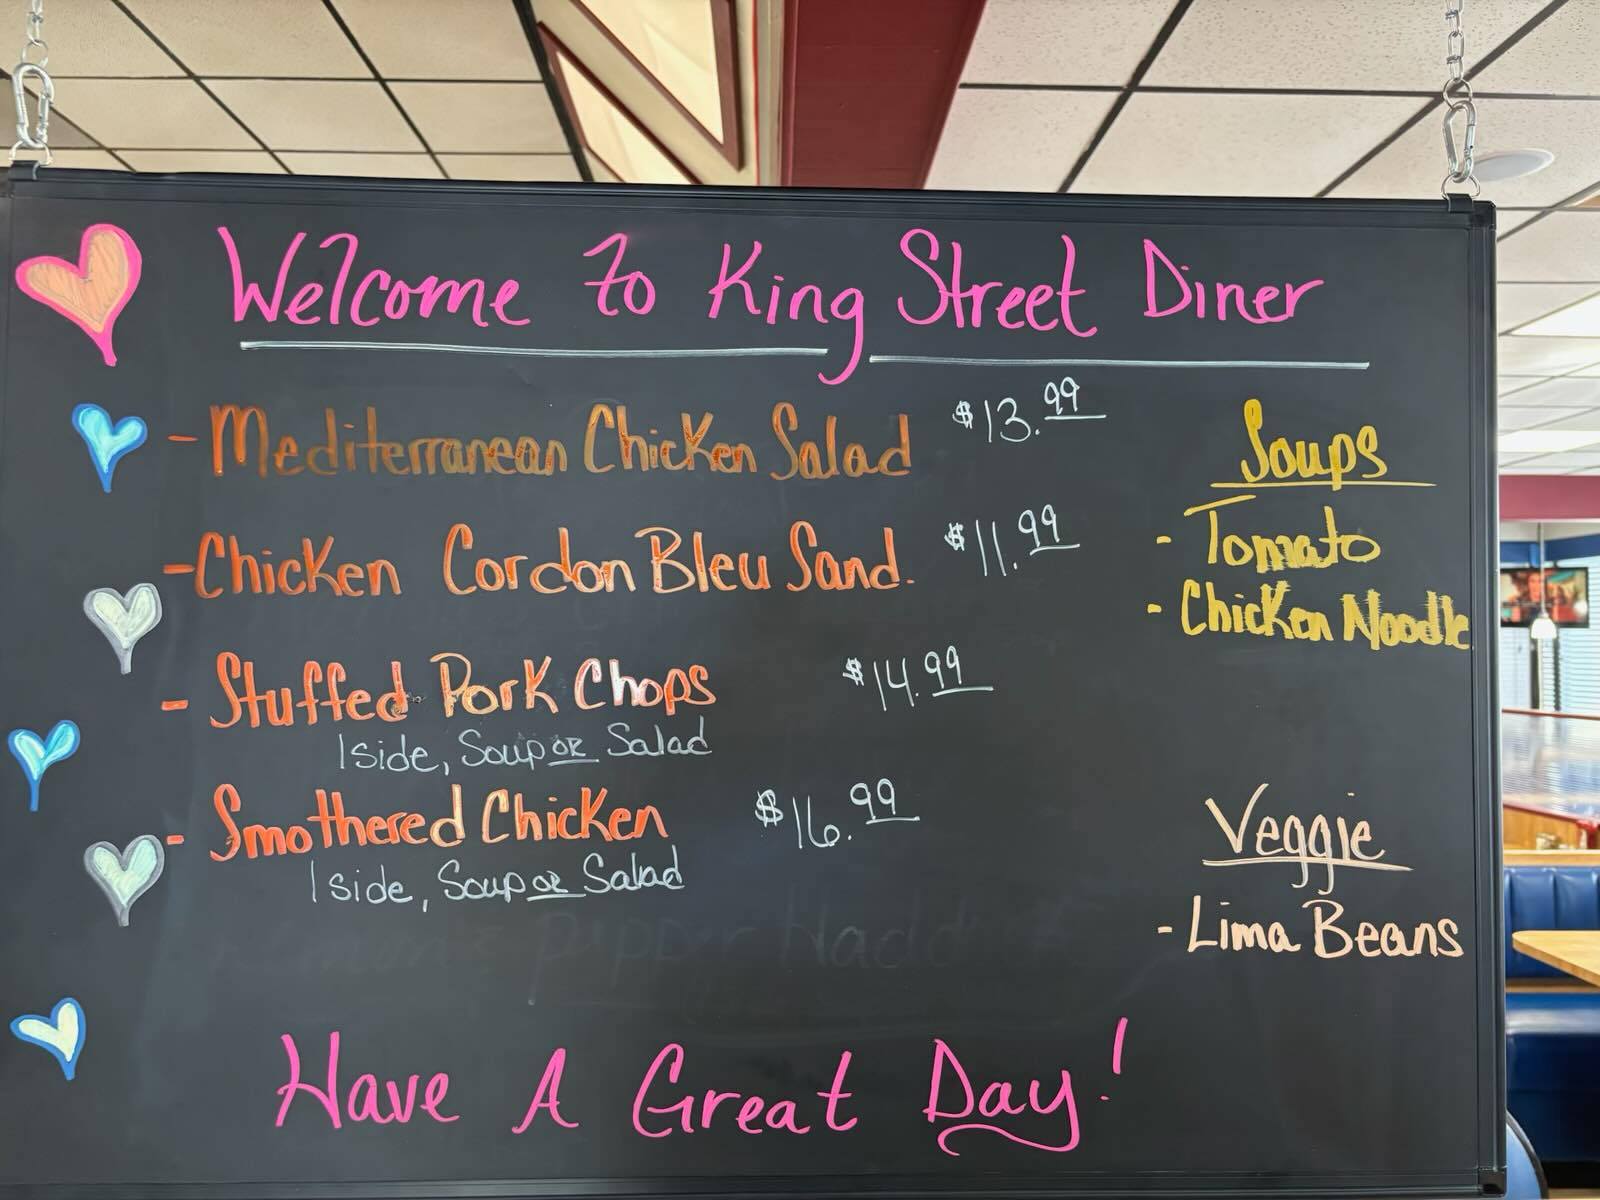 Welcome to King Street Diner
- Mediterranean Chicken Salad $13.99
- Chicken Cordon Bleu Sand. $11.99
- Stuffed Pork Chops $14.99
1 side, Soup or Salad
- Smothered Chicken $16.99
1 side, Soup or Salad
Soups
- Tomato
- Chicken Noodle
Veggie
- Lima Beans
Pepper Haddock
Have A Great Day!